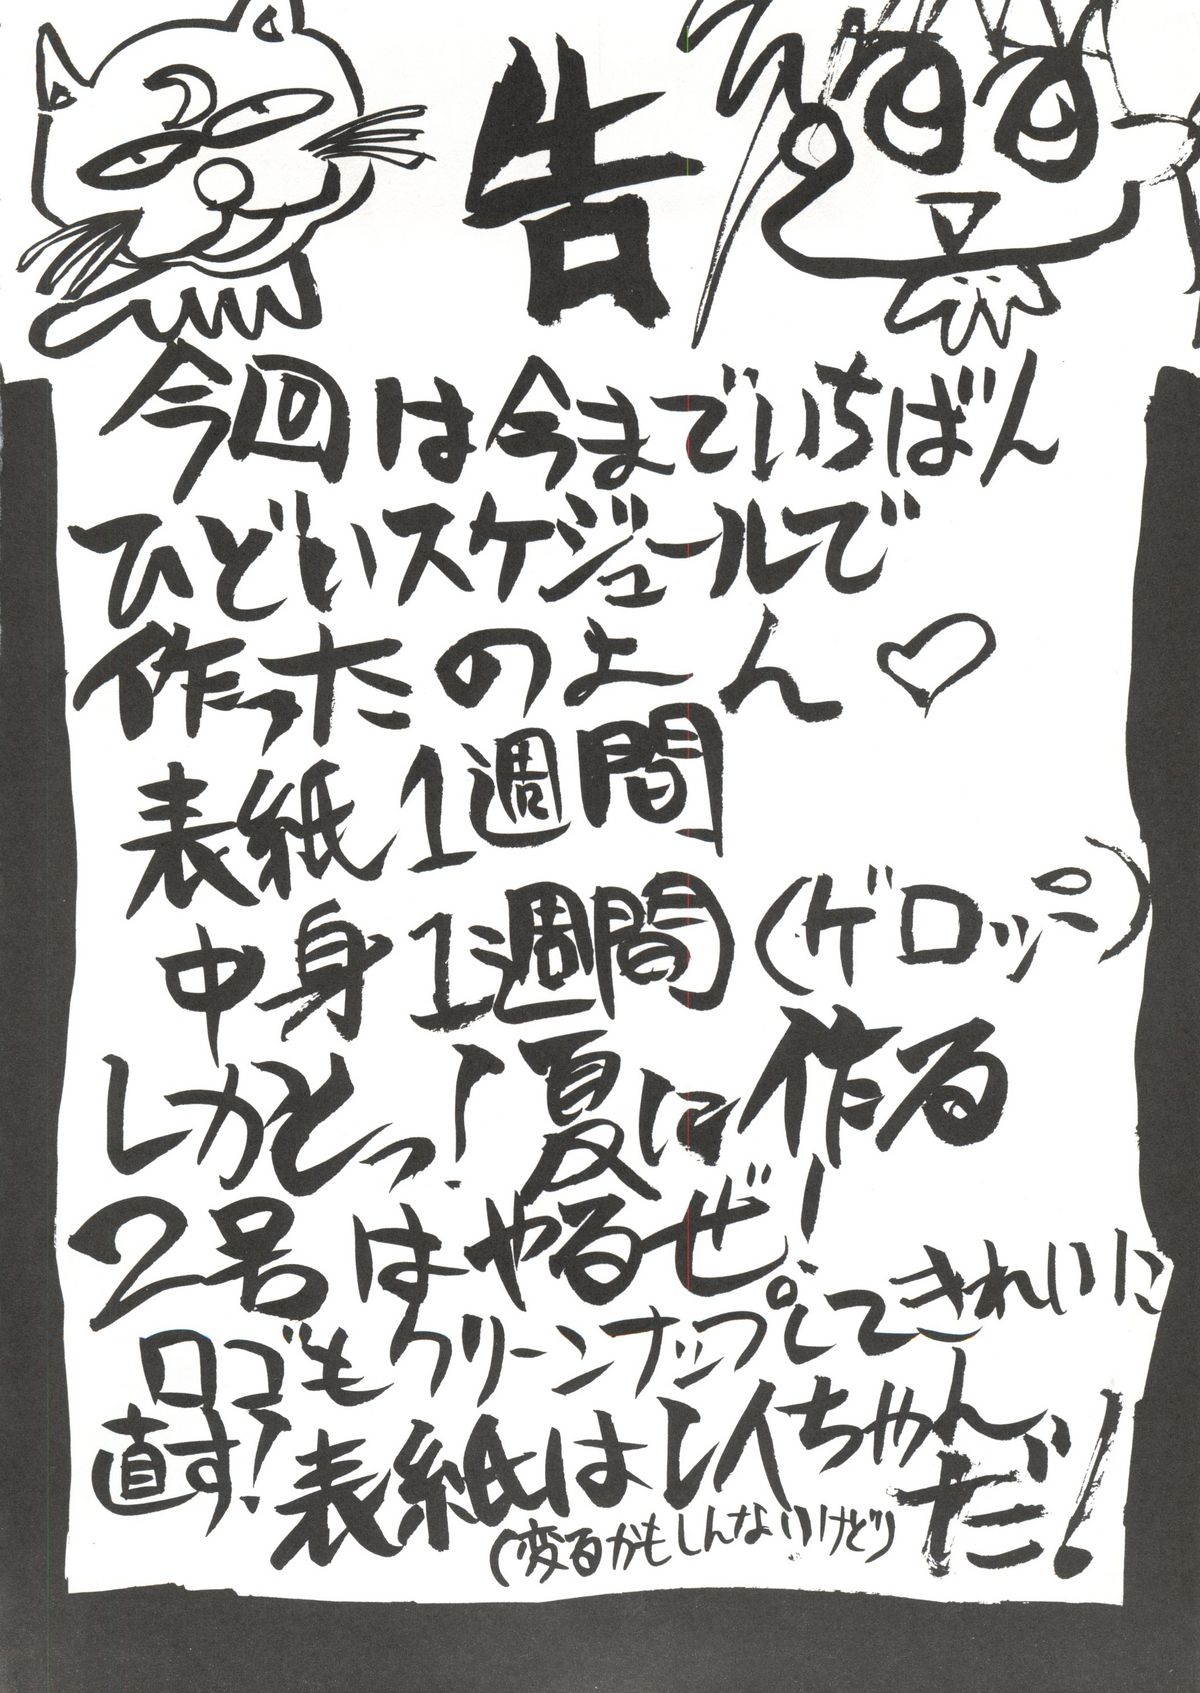 告
今回は今までいちばん
ひどいスケジュールで
作ったのよん♡
表紙1週間
中身1週間(ゲロッパ)
しかとっ!夏に作る
2号はやるぜ!
ロゴもクリーンナップしてきれいに
直す!表紙はレイちゃんだ!
(変るかもしんないけど)